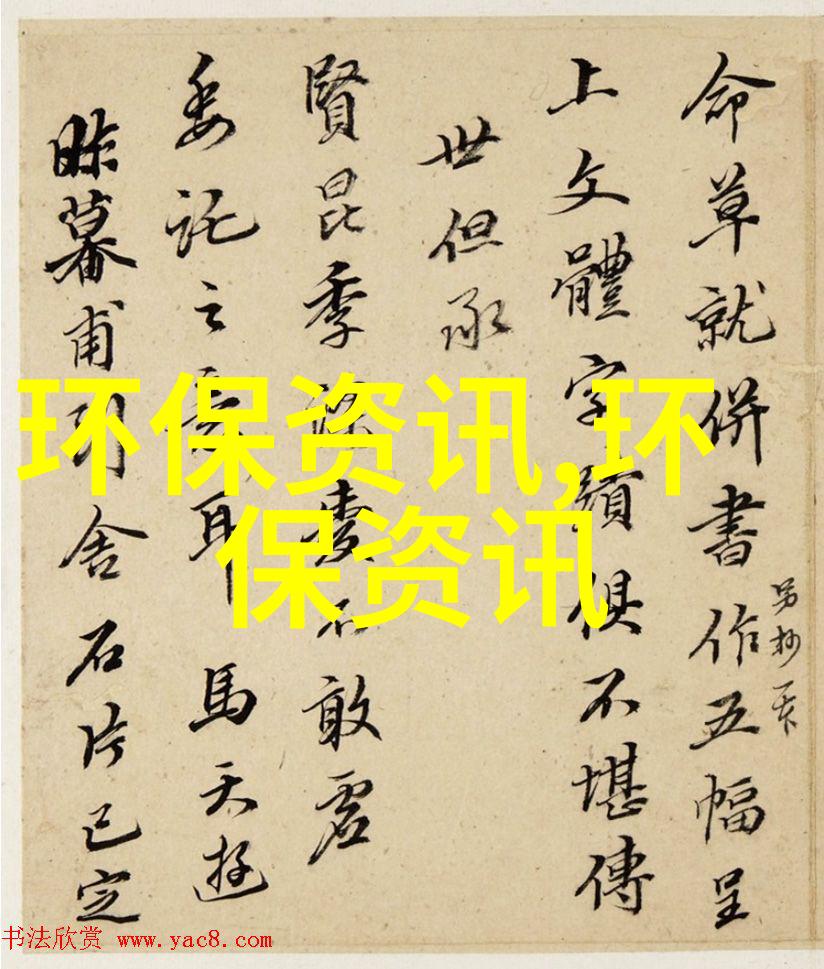 命草就併書作五幅呈
另抄一
上文體字蹟俱不堪傳
世但承
賢昆季深愛不敢虛
委託之意耳馬天游
昨暮甫到舍石片已定
环保资讯,环
保资讯
书法欣赏 www.yac8.com